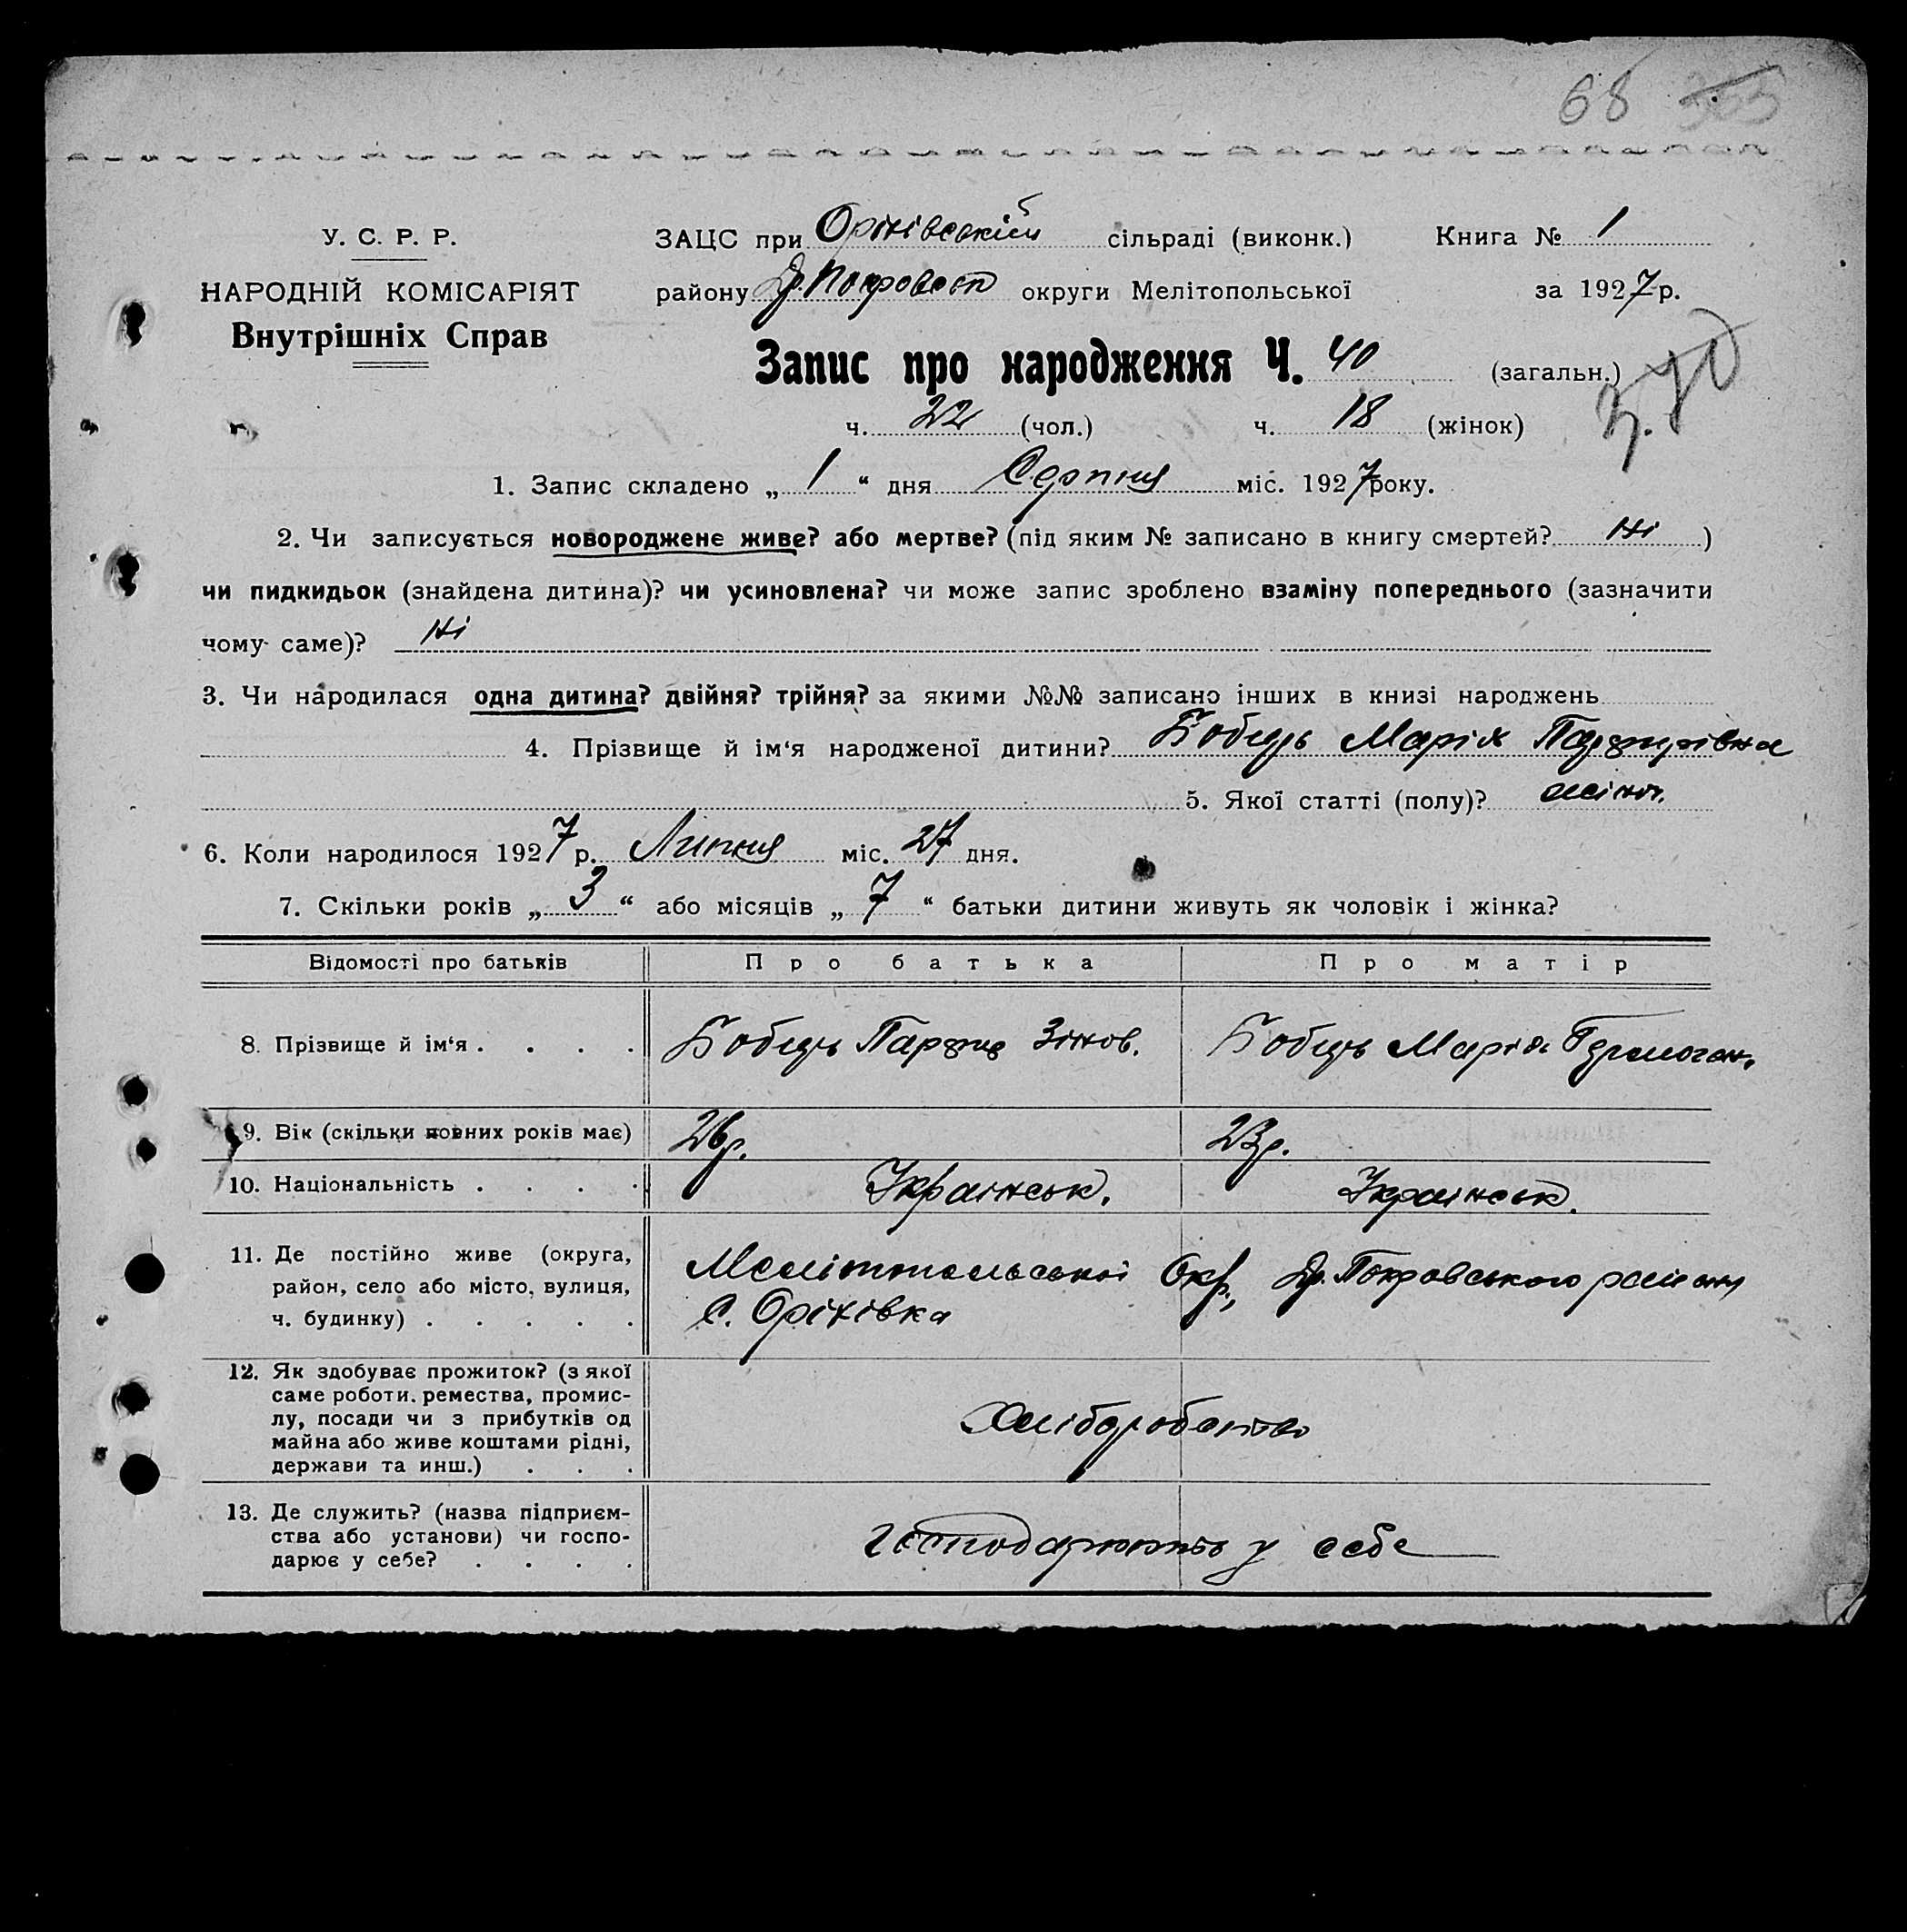 68 355
У. С. Р. Р.
НАРОДНІЙ КОМІСАРІЯТ
Внутрішніх Справ
ЗАЦС при Оріхівській сільраді (виконк.) Книга № 1
району Др. Покровськ округи Мелітопольської за 1927 р.
Запис про народження Ч. 40 (загальн.)
ч. 22 (чол.) ч. 18 (жінок)
1. Запис складено „ 1 “ дня Серпня міс. 1927 року.
2. Чи записується новороджене живе? або мертве? (під яким № записано в книгу смертей? Ні )
чи пидкидьок (знайдена дитина)? чи усиновлена? чи може запис зроблено взаміну попереднього (зазначити
чому саме)? Ні
3. Чи народилася одна дитина? двійня? трійня? за якими №№ записано інших в книзі народжень
4. Прізвище й ім‘я народженої дитини? Бобець Марія
5. Якої статті (полу)? жіноч.
6. Коли народилося 1927 р. Липня міс. 27 дня.
7. Скільки років „ 3 “ або місяців „ 7 “ батьки дитини живуть як чоловік і жінка?
Відомості про батьків Про батька Про матір
8. Прізвище й ім‘я . . . . Бобець Зінов. Бобець Марія
9. Вік (скільки повних років має) 26 р. 23 р.
10. Національність . . . . Українськ. Українськ.
11. Де постійно живе (округа,
район, село або місто, вулиця,
ч. будинку) . . . . .
Мелітопольської Окр., Др. Покровського району
с. Оріхівка
12. Як здобуває прожиток? (з якої
саме роботи, ремества, промис-
лу, посади чи з прибутків од
майна або живе коштами рідні,
держави та инш.) . . .
Хліборобство
13. Де служить? (назва підприєм-
ства або установи) чи госпо-
дарює у себе? . . . .
господарюють у себе